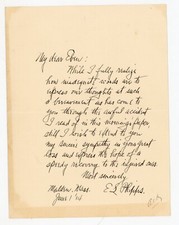 My dear Eben:
While I fully realize
how inadequate words are to
express our thoughts at such
a bereavement as has come to
you through the awful accident
I read of in this morning's paper,
still I wish to extend to you
my sincere sympathy in your great
loss and express the hope of a
speedy recovery to the injured ones.
Most sincerely
E. L. Phipps.
Malden, Mass.
June 1